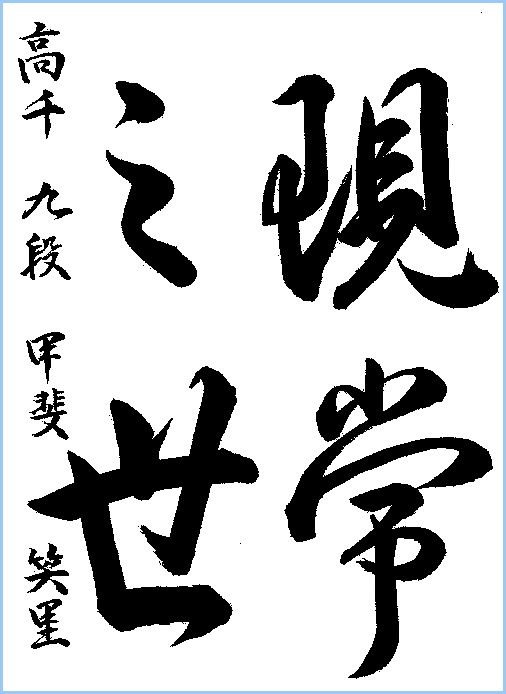 現常
之世
高千 九段 甲斐 笑里